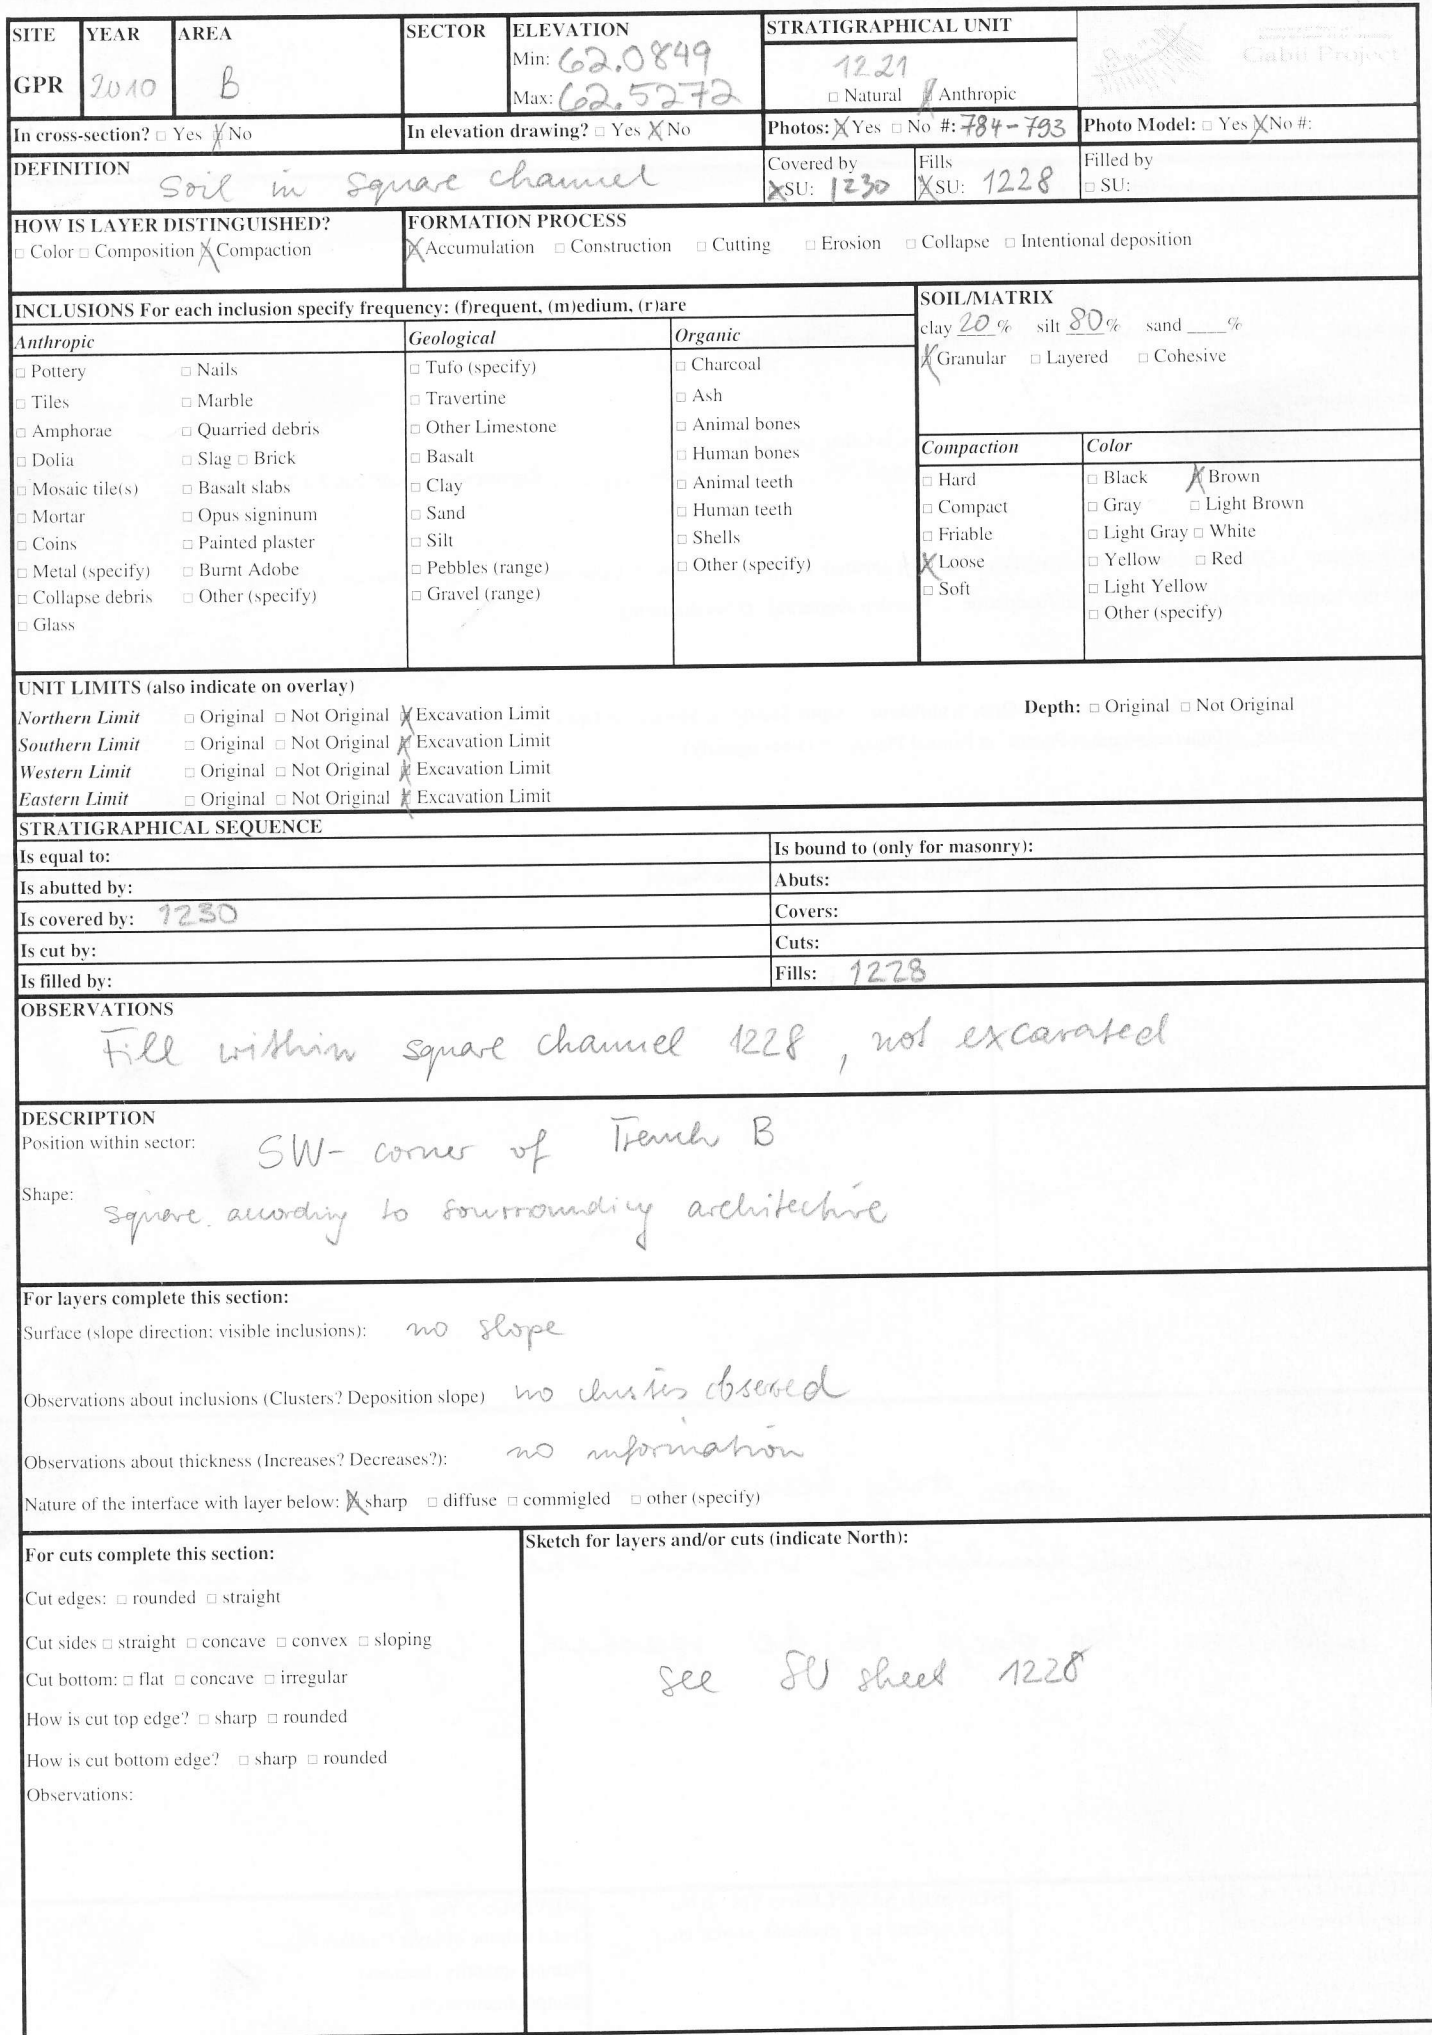 SITE YEAR AREA SECTOR ELEVATION STRATIGRAPHICAL UNIT
GPR 2010 B Min: 62.0849 1221 Gabii Project
Max: 62.5272 □ Natural ☒ Anthropic
In cross-section? □ Yes ☒ No In elevation drawing? □ Yes ☒ No Photos: ☒ Yes □ No #: 784-793 Photo Model: □ Yes ☒ No #:
DEFINITION Soil in square channel Covered by ☒ SU: 1230 Fills ☒ SU: 1228 Filled by □ SU:
HOW IS LAYER DISTINGUISHED? FORMATION PROCESS
□ Color □ Composition ☒ Compaction ☒ Accumulation □ Construction □ Cutting □ Erosion □ Collapse □ Intentional deposition
INCLUSIONS For each inclusion specify frequency: (f)requent, (m)edium, (r)are
Anthropic
□ Pottery □ Nails
□ Tiles □ Marble
□ Amphorae □ Quarried debris
□ Dolia □ Slag □ Brick
□ Mosaic tile(s) □ Basalt slabs
□ Mortar □ Opus signinum
□ Coins □ Painted plaster
□ Metal (specify) □ Burnt Adobe
□ Collapse debris □ Other (specify)
□ Glass
Geological
□ Tufo (specify)
□ Travertine
□ Other Limestone
□ Basalt
□ Clay
□ Sand
□ Silt
□ Pebbles (range)
□ Gravel (range)
Organic
□ Charcoal
□ Ash
□ Animal bones
□ Human bones
□ Animal teeth
□ Human teeth
□ Shells
□ Other (specify)
SOIL/MATRIX
clay 20 % silt 80 % sand ____%
☒ Granular □ Layered □ Cohesive
Compaction
□ Hard
□ Compact
□ Friable
☒ Loose
□ Soft
Color
□ Black ☒ Brown
□ Gray □ Light Brown
□ Light Gray □ White
□ Yellow □ Red
□ Light Yellow
□ Other (specify)
UNIT LIMITS (also indicate on overlay)
Northern Limit □ Original □ Not Original ☒ Excavation Limit Depth: □ Original □ Not Original
Southern Limit □ Original □ Not Original ☒ Excavation Limit
Western Limit □ Original □ Not Original ☒ Excavation Limit
Eastern Limit □ Original □ Not Original ☒ Excavation Limit
STRATIGRAPHICAL SEQUENCE
Is equal to: Is bound to (only for masonry):
Is abutted by: Abuts:
Is covered by: 1230 Covers:
Is cut by: Cuts:
Is filled by: Fills: 1228
OBSERVATIONS
Fill within square channel 1228, not excavated
DESCRIPTION
Position within sector: SW- corner of Trench B
Shape: square according to sourrounding architective
For layers complete this section:
Surface (slope direction: visible inclusions): no slope
Observations about inclusions (Clusters? Deposition slope) no clusters observed
Observations about thickness (Increases? Decreases?): no information
Nature of the interface with layer below: ☒ sharp □ diffuse □ commigled □ other (specify)
For cuts complete this section:
Cut edges: □ rounded □ straight
Cut sides □ straight □ concave □ convex □ sloping
Cut bottom: □ flat □ concave □ irregular
How is cut top edge? □ sharp □ rounded
How is cut bottom edge? □ sharp □ rounded
Observations:
Sketch for layers and/or cuts (indicate North):
see SU sheet 1228